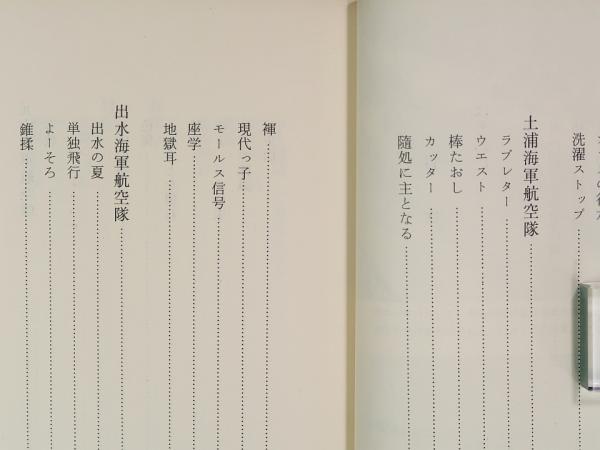 洗濯ストップ
土浦海軍航空隊
ラブレター
ウエスト
棒たおし
カッター
隨処に主となる
褌
現代っ子
モールス信号
座学
地獄耳
出水海軍航空隊
出水の夏
単独飛行
よーそろ
錐揉